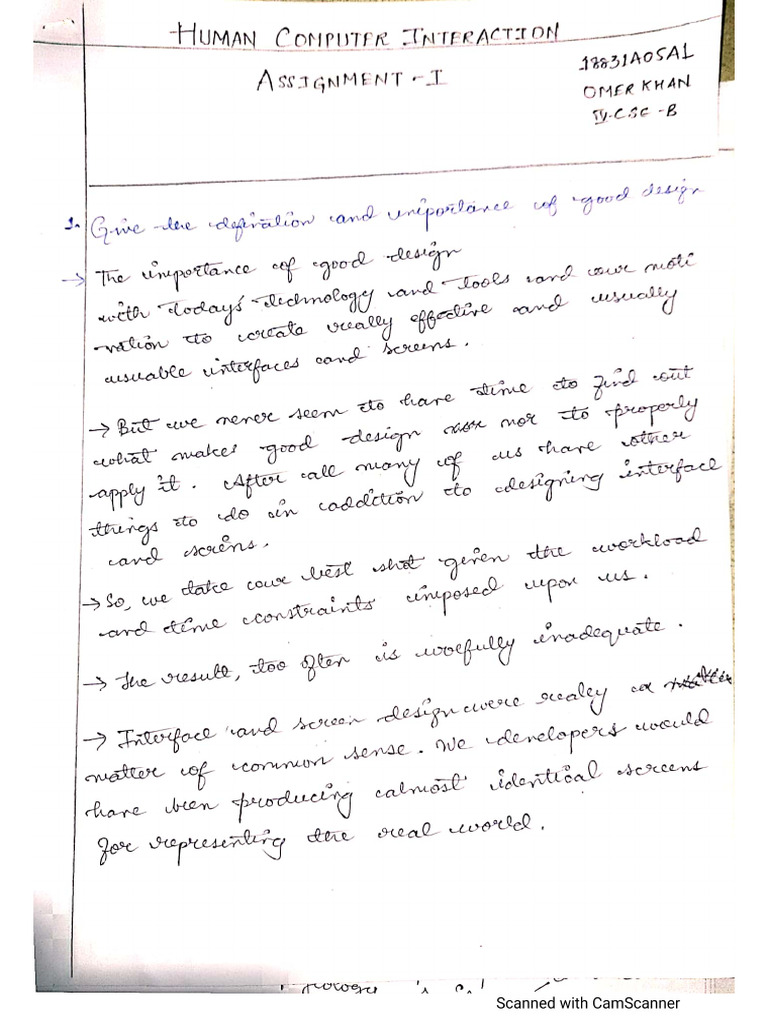 HUMAN COMPUTER INTERACTION
ASSIGNMENT - I
18831A05A1
OMER KHAN
IV-CSE-B
1. Give the defination and importance of good design
→ The importance of good design
with Today's technology and tools and our moti
-vation to create really effective and usually
usuable interfaces and screens.
→ But we never seem to have time to find out
what makes good design nor to properly
apply it. After all many of us have other
things to do in addiction to designing interface
and screns.
→ So, we take our best shot given the workload
and time constraints imposed upon us.
→ The result, too often is woefully inadequate.
→ Interface and screen design were realey a
matter of common sense. We developers would
have been producing almost identical screens
for representing the real world.
Scanned with CamScanner